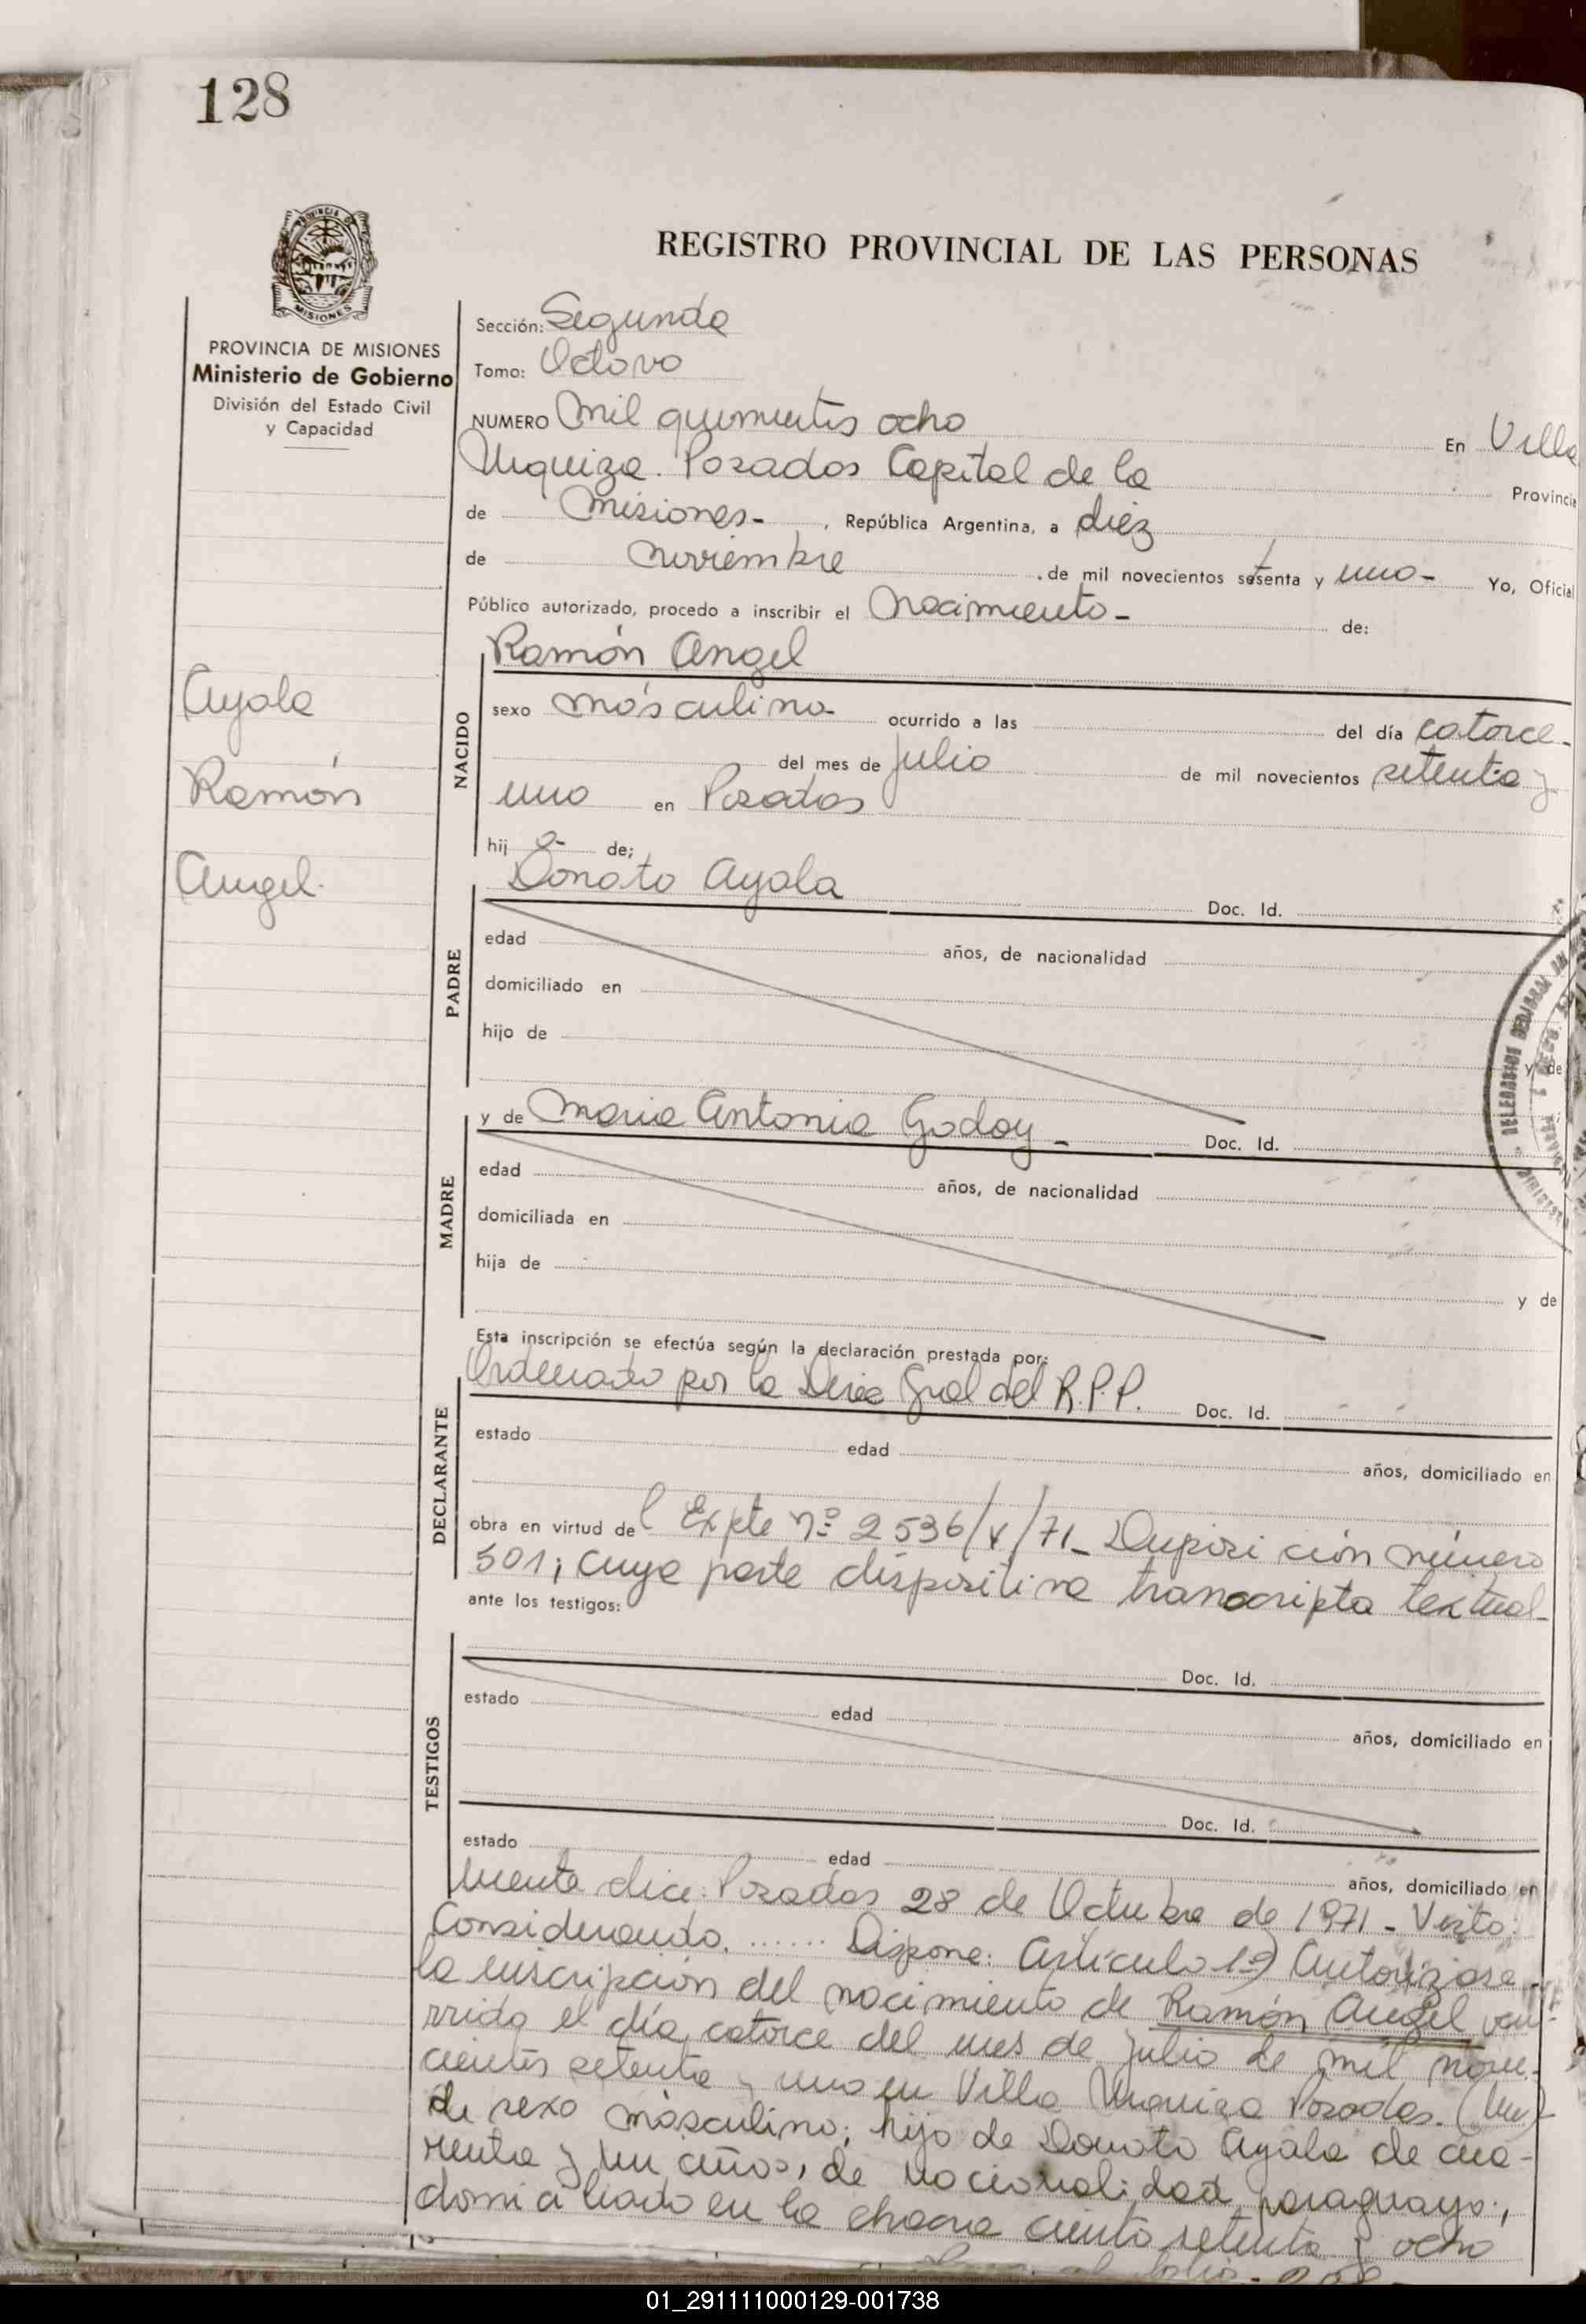 128
REGISTRO PROVINCIAL DE LAS PERSONAS
PROVINCIA DE
MISIONES
PROVINCIA DE MISIONES
Ministerio de Gobierno
División del Estado Civil
y Capacidad
Sección: Segunda
Tomo: Octavo
NUMERO Mil quinientos ocho En Villa
Urquiza. Posadas Capital de la Provincia
de Misiones- , República Argentina, a diez
de noviembre de mil novecientos setenta y uno- Yo, Oficial
Público autorizado, procedo a inscribir el Nacimiento- de:
Ramón Angel
Ayala
Ramón
Angel.
NACIDO
sexo másculino- ocurrido a las del día catorce-
del mes de julio de mil novecientos setenta y
uno en Posadas
hij o- de;
Donato Ayala Doc. Id.
PADRE
edad años, de nacionalidad
domiciliado en
hijo de
y de
y de Maria Antonia Godoy - Doc. Id.
MADRE
edad años, de nacionalidad
domiciliada en
hija de
y de
Esta inscripción se efectúa según la declaración prestada por:
Ordenado por la Direc Gral del R.P.P. Doc. Id.
DECLARANTE
estado edad años, domiciliado en
obra en virtud del Expte nº 2536/ /71- Disposición número
501; cuya parte dispositiva transcripta textual-
ante los testigos:
Doc. Id.
TESTIGOS
estado edad años, domiciliado en
Doc. Id.
estado edad años, domiciliado en
mente dice: Posadas 28 de Octubre de 1971 - Visto:
Considerando. ...... Dispone: Artículo 1º) Autorizase
la inscripción del nacimiento de Ramón Angel
rrido el día catorce del mes de julio de mil nove-
cientos setenta y uno en Villa Urquiza Posadas.
de sexo másculino; hijo de Donato Ayala de cua-
renta y un años, de nacionalidad paraguaya;
domiciliado en la chacra ciento setenta y ocho
01_291111000129-001738